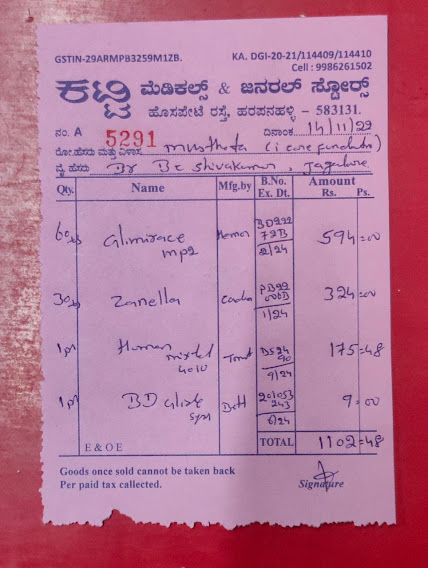 GSTIN-29ARMPB3259M1ZB. KA. DGI-20-21/114409/114410
Cell : 9986261502
ಕಟ್ಟಿ ಮೆಡಿಕಲ್ಸ್ & ಜನರಲ್ ಸ್ಟೋರ್ಸ್
ಹೊಸಪೇಟೆ ರಸ್ತೆ, ಹರಪನಹಳ್ಳಿ - 583131.
ನಂ. A 5291 ದಿನಾಂಕ 14/11/22
ರೋ.ಹೆಸರು ಮತ್ತು ವಿಳಾಸ
ವೈ.ಹೆಸರು Dr Bc Shivakumar, Jagalore
Qty. Name Mfg.by B.No. Ex. Dt. Amount Rs. Ps.
60 Mp2 BD222 72B 2/24 594=00
30 Zanella PB22 1/24 324=00
1 Human mixtel 4010 9/24 175=48
1 BD 201053 243 6/24 9=00
E & O E TOTAL 1102=48
Goods once sold cannot be taken back
Per paid tax callected. Signature